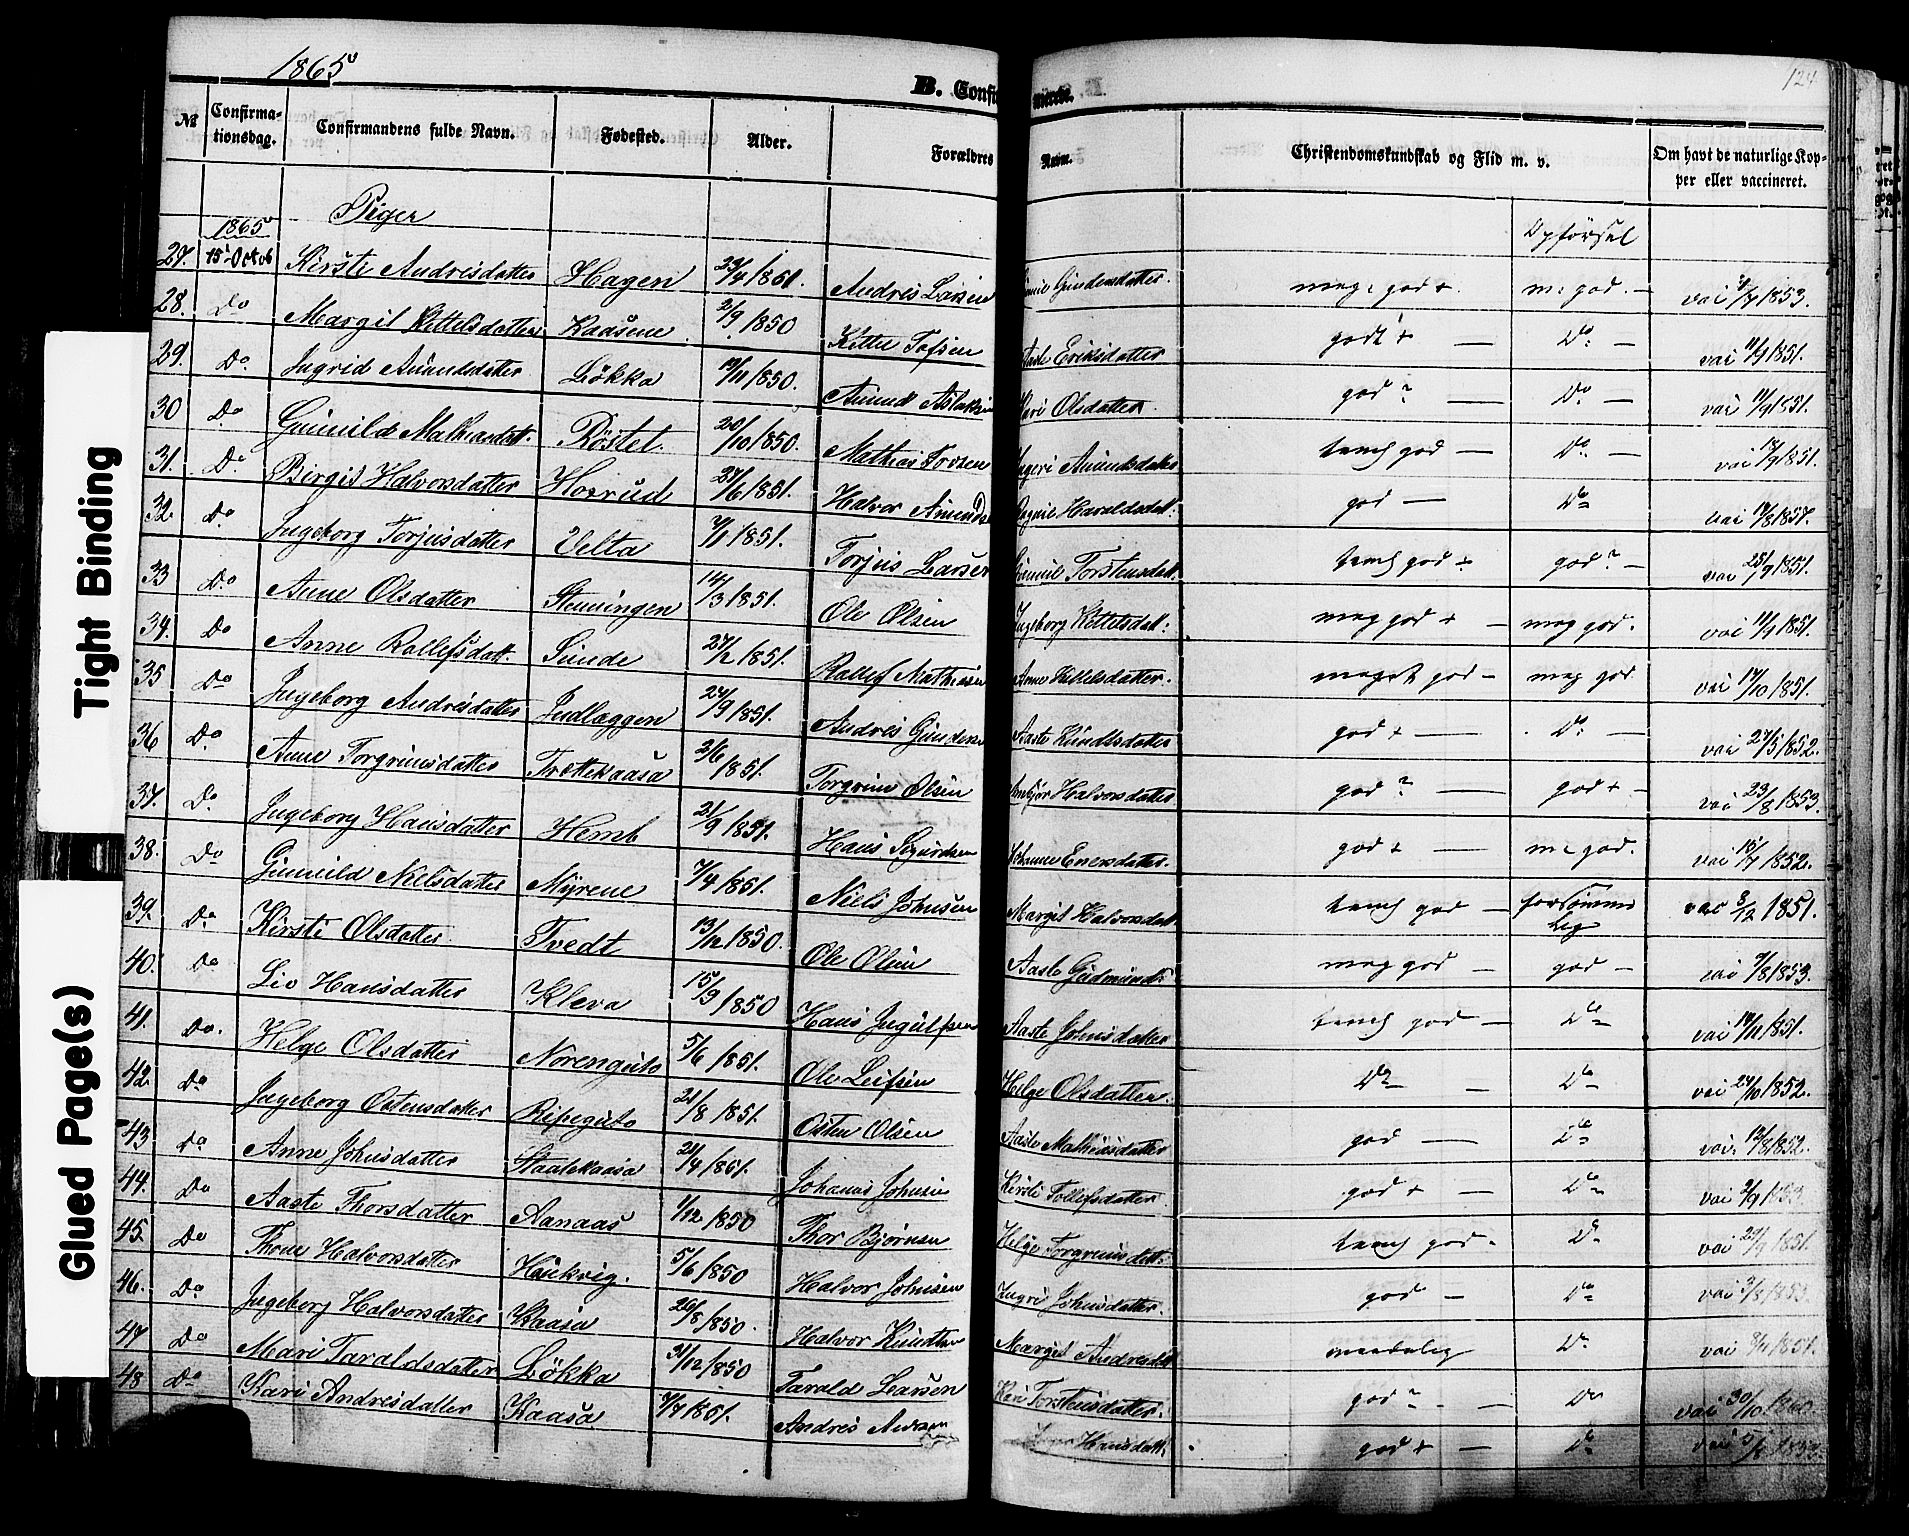 1865
124
B. Confir mirede.
№ Confirmationsdag. Confirmandens fulde Navn. Fødested. Alder. Forældres Navn. Christendomskundskab og Flid m. v. Om havt de naturlige Kopper eller vaccineret.
1865 Piger Opførsel
27. 15 Octob Kirsti Andreisdatter Hagen 23/4 1851. Andreis Larsen Gundersdatter. meg. god + m. god. — vac 1853.
28. Do Margit Kettelsdatter Kaasene 2/9 1850 Kittel Tofsen Aaste Eriksdatter godt + — Do — vac 11/9 1851.
29. Do Ingrid Amundsdatter Løkka 19/11 1850. Amund Aslaksen Kari Olsdatter. god ? — Do — vac 11/9 1851.
30 Do Gunnild Mathiasdatt. Røstet 20/10 1850. Mathias Torsen Ingeri Amundsdatter temd god — Do — vac 1851.
31. Do Birgit Halvorsdatter Hovrud 27/6 1851. Halvor Amunds Haraldsdatt: god — Do vac 1851.
32. Do Ingeborg Torjusdatter Velta 1/1 1851. Torjus Larsen Gunnil Torstensdatt. temd god + god ? — vac 25/9 1851.
33 Do Anne Olsdatter Stenningen 14/3 1851. Ole Olsen Ingeborg Kettelsdatt: meg god + — meg god. vac 11/9 1851.
34. Do Anne Rollefsdatt. Sunde 27/2 1851. Rollef Mathisen Anne Kittelsdatter. meget god — meg god. vac 17/10 1851.
35 Do Ingeborg Andreisdatter Indlæggen 24/9 1851. Andreis Gunders Aaste Knudtsdatter god + — Do — vac 27/5 1852.
36 Do Anne Torgrimsdatter Trættekaasa 2/6 1851. Torgrim Olsen Halvorsdatter god ? — god + — vac 23/8 1853.
37. Do Ingeborg Hansdatter Hemb 21/9 1851. Hans Sigurdsen Johanne Enersdatter. god + — m. god. vac 15/7 1852.
38. Do Gunnild Nielsdatter Myrene 7/4 1851. Niels Johnsen Margit Halvorsdatt. temd god — forsømmelig vac 3/12 1851.
39. Do Kirsti Olsdatter. Tvedt 13/12 1850. Ole Olsen Aaste Gudmunds: meg god — god — vac 9/8 1853.
40. Do Liv Hansdatter Kleva 15/9 1850 Hans Ingulfsen Aaste Johnsdatter temd god — Do vac 1851.
41. Do. Helge Olsdatter Norenguto 5/6 1851. Ole Leifsen Helge Olsdatter. Do — Do vac 24/10 1852.
42. Do Ingeborg Ostensdatter Ripeguto 21/8 1851. Osten Olsen Aaste Mathiasdatter god — Do vac. 1852.
43. Do Anne Johnsdatter Staalekaasa 24/4 1851. Johanes Johnsen Kirsti Tollefsdatter. god + — Do vac 9/9 1853
44. Do Aaste Thorsdatter Aanaas 1/12 1850 Thor Bjørnsen Helge Torgrimsdatt: temd god. Do vac 1851.
45. Do Thone Halvorsdatter Haukvig. 5/6 1850 Halvor Johnsen Ingri Johnsdatter. god — Do vac 3/8 1853.
46. Do Ingeborg Halvorsdatter Kaasa 26/8 1850. Halvor Knudtsen Margit Andreisdatt maadelig Do vac 1851.
47 Do Mari Taraldsdatter Løkka 31/12 1850 Tarald Larsen Kari Torstensdatter. god ? — Do vac 30/10 1860.
48 Do Kari Andreisdatter Kaasa 7/7 1851. Andreis Hansdatt. god + — Do vac
Tight Binding
Glued Page(s)